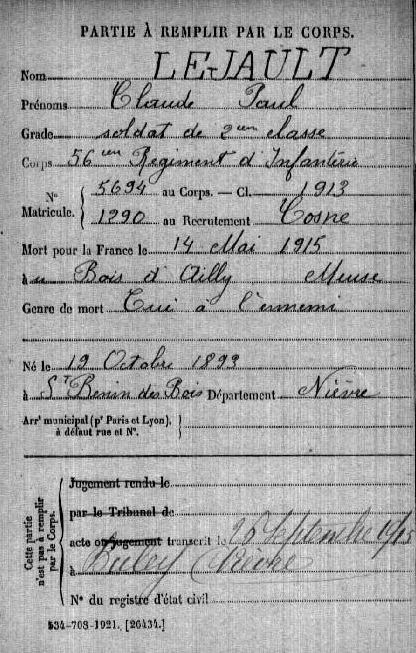 PARTIE À REMPLIR PAR LE CORPS.
Nom LEJAULT
Prénoms Claude Paul
Grade soldat de 2eme classe
Corps 56eme Régiment d'Infanterie
N° Matricule. { 5694 au Corps. — Cl. 1913
1290 au Recrutement Cosne
Mort pour la France le 14 Mai 1915
à u Bois d'Ailly Meuse
Genre de mort Tué à l'ennemi
Né le 12 Octobre 1893
à St Benin des Bois Département Nièvre
Arrt municipal (pr Paris et Lyon), }
à défaut rue et N°.
Cette partie n'est pas à remplir par le Corps.
Jugement rendu le
par le Tribunal de
acte ou jugement transcrit le 20 Septembre 1915
à Nièvre
N° du registre d'état civil
534-708-1921. [26434.]